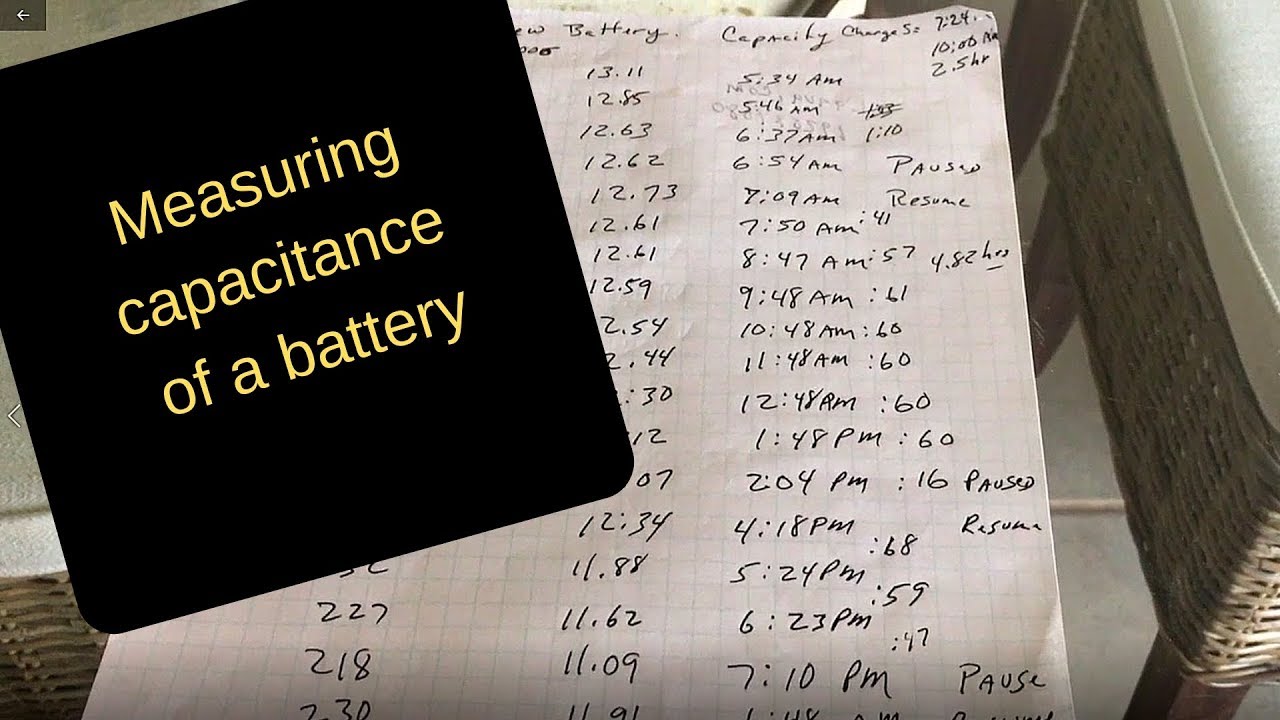 Measuring
capacitance
of a battery
Battery. Capacity Charge 5:
7:24
10:00 AM
2.5hr
13.11 5:34 AM
12.85 5:46 AM
12.63 6:37 AM 1:10
12.62 6:54 AM PAUSED
12.73 7:09 AM Resume
12.61 7:50 AM :41
12.61 8:47 AM :57 4.82 hrs
12.59 9:48 AM :61
2.54 10:48 AM :60
2.44 11:48 AM :60
:30 12:48 AM :60
12 1:48 PM :60
07 2:04 PM :16 PAUSED
12:34 4:18 PM Resume
:68
11.88 5:24 PM
:59
227 11.62 6:23 PM
:47
218 11.09 7:10 PM PAUSE
230 11.91